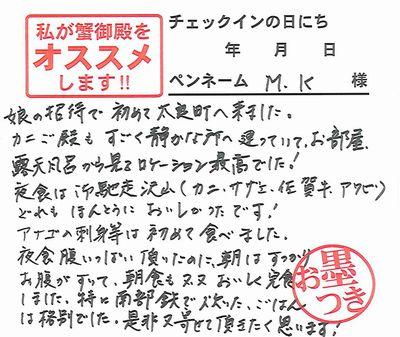 私が蟹御殿を
オススメ
します!!
チェックインの日にち
年 月 日
ペンネーム M.K 様
娘の招待で初めて太良町へ来ました。
カニご殿もすごく静かな所へ建っていて、お部屋、
露天風呂から見るロケーション最高でした!
夜食は御馳走沢山(カニ、サザエ、佐賀牛、アワビ)
どれもほんとうにおいしかったです!
アナゴの刺身等は初めて食べました。
夜食腹いっぱい頂ったのに、朝はすっかり
お腹がすって、朝食も又又おいしく完食
しました。特に南部鉄で炊いた、ごはん
は格別でした。是非又寄せて頂きたく思います!
お墨つき